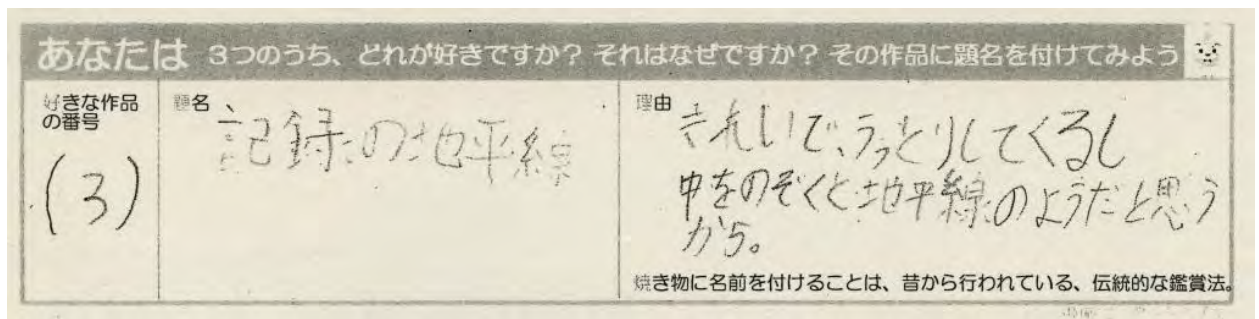 あなたは 3つのうち、どれが好きですか? それはなぜですか? その作品に題名を付けてみよう
好きな作品
の番号
(3)
題名
記録の地平線
理由
きれいで、うっとりしてくるし
中をのぞくと地平線のようだと思う
から。
焼き物に名前を付けることは、昔から行われている、伝統的な鑑賞法。